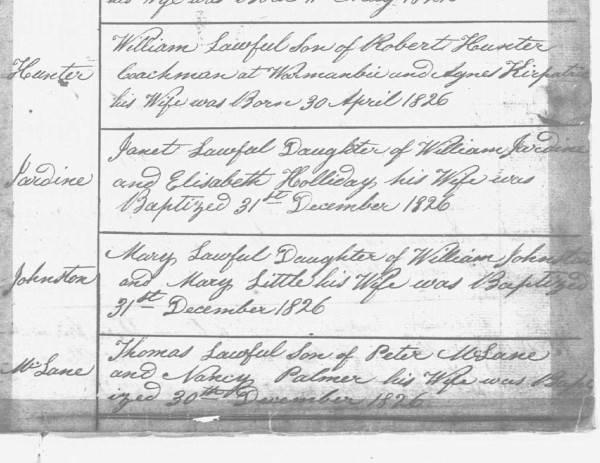 his Wife was Born
Hunter
William Lawful Son of Robert Hunter
Coachman at Wormanbie and Agnes Kirpatric
his Wife was Born 30 April 1826
Jardine
Janet Lawful Daughter of William Jardine
and Elisabeth Holliday his Wife was
Baptized 31st December 1826
Johnston
Mary Lawful Daughter of William Johnston
and Mary Little his Wife was Baptized
31st December 1826
McLane
Thomas Lawful Son of Peter McLane
and Nancy Palmer his Wife was Bapt
ized 30th December 1826